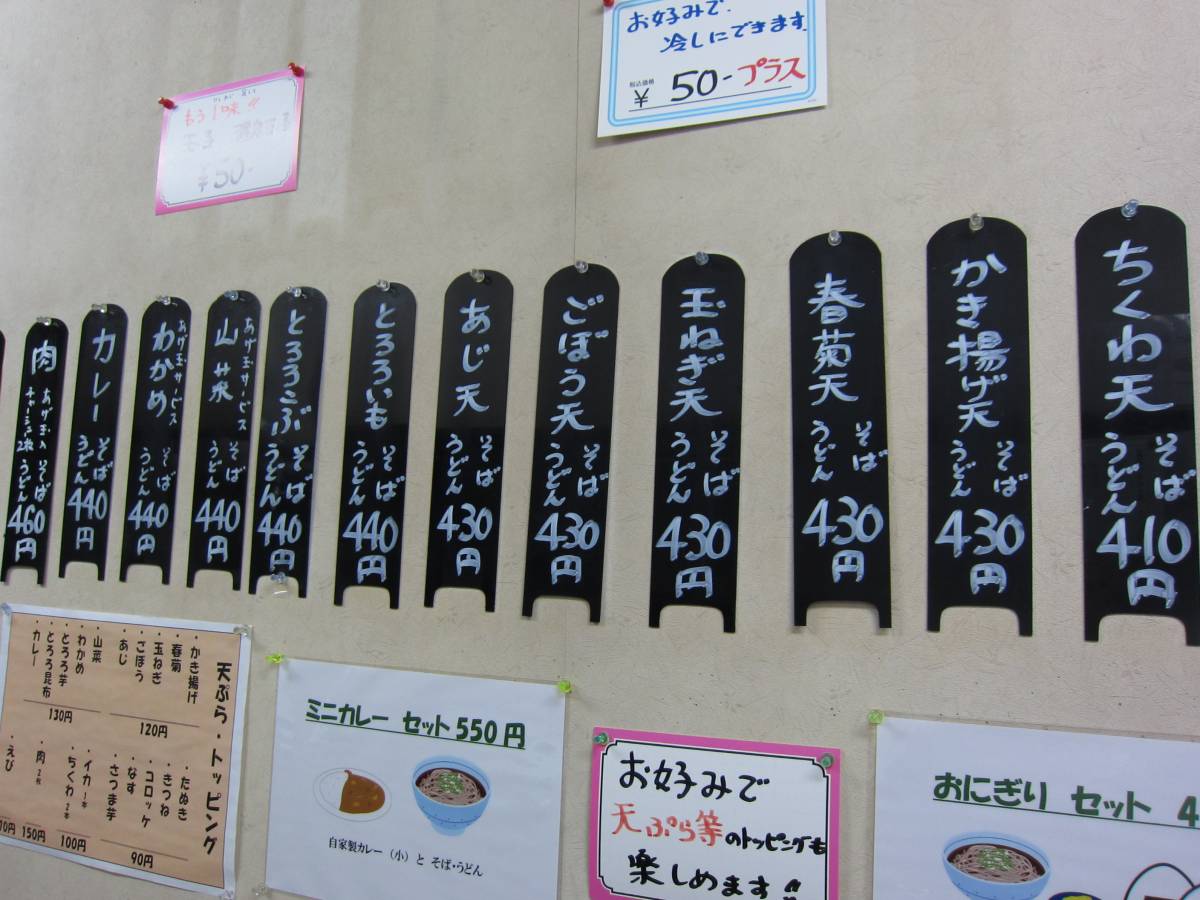 お好みで
冷しにできます
税込価格
¥ 50-プラス
もう1味!!
玉子
¥50-
ちくわ天
そば
うどん
410円
かき揚げ天
そば
うどん
430円
春菊天
そば
うどん
430円
玉ねぎ天
そば
うどん
430円
ごぼう天
そば
うどん
430円
あじ天
そば
うどん
430円
とろろいも
そば
うどん
440円
とろろこぶ
そば
うどん
440円
あげ玉サービス
山菜
そば
うどん
440円
あげ玉サービス
わかめ
そば
うどん
440円
カレー
そば
うどん
440円
肉
あげ玉入
チャーシュー2枚
そば
うどん
460円
天ぷら・トッピング
・かき揚げ
春菊
・玉ねぎ
・ごぼう
・あじ
120円
・山菜
・わかめ
・とろろ芋
・とろろ昆布
カレー
130円
・たぬき
・きつね
・コロッケ
・なす
・さつま芋
90円
・イカ 1本
・ちくわ 2本
100円
・肉 2枚
150円
えび
ミニカレー セット 550円
自家製カレー(小)と そば・うどん
お好みで
天ぷら等のトッピングも
楽しめます!!
おにぎり セット 4